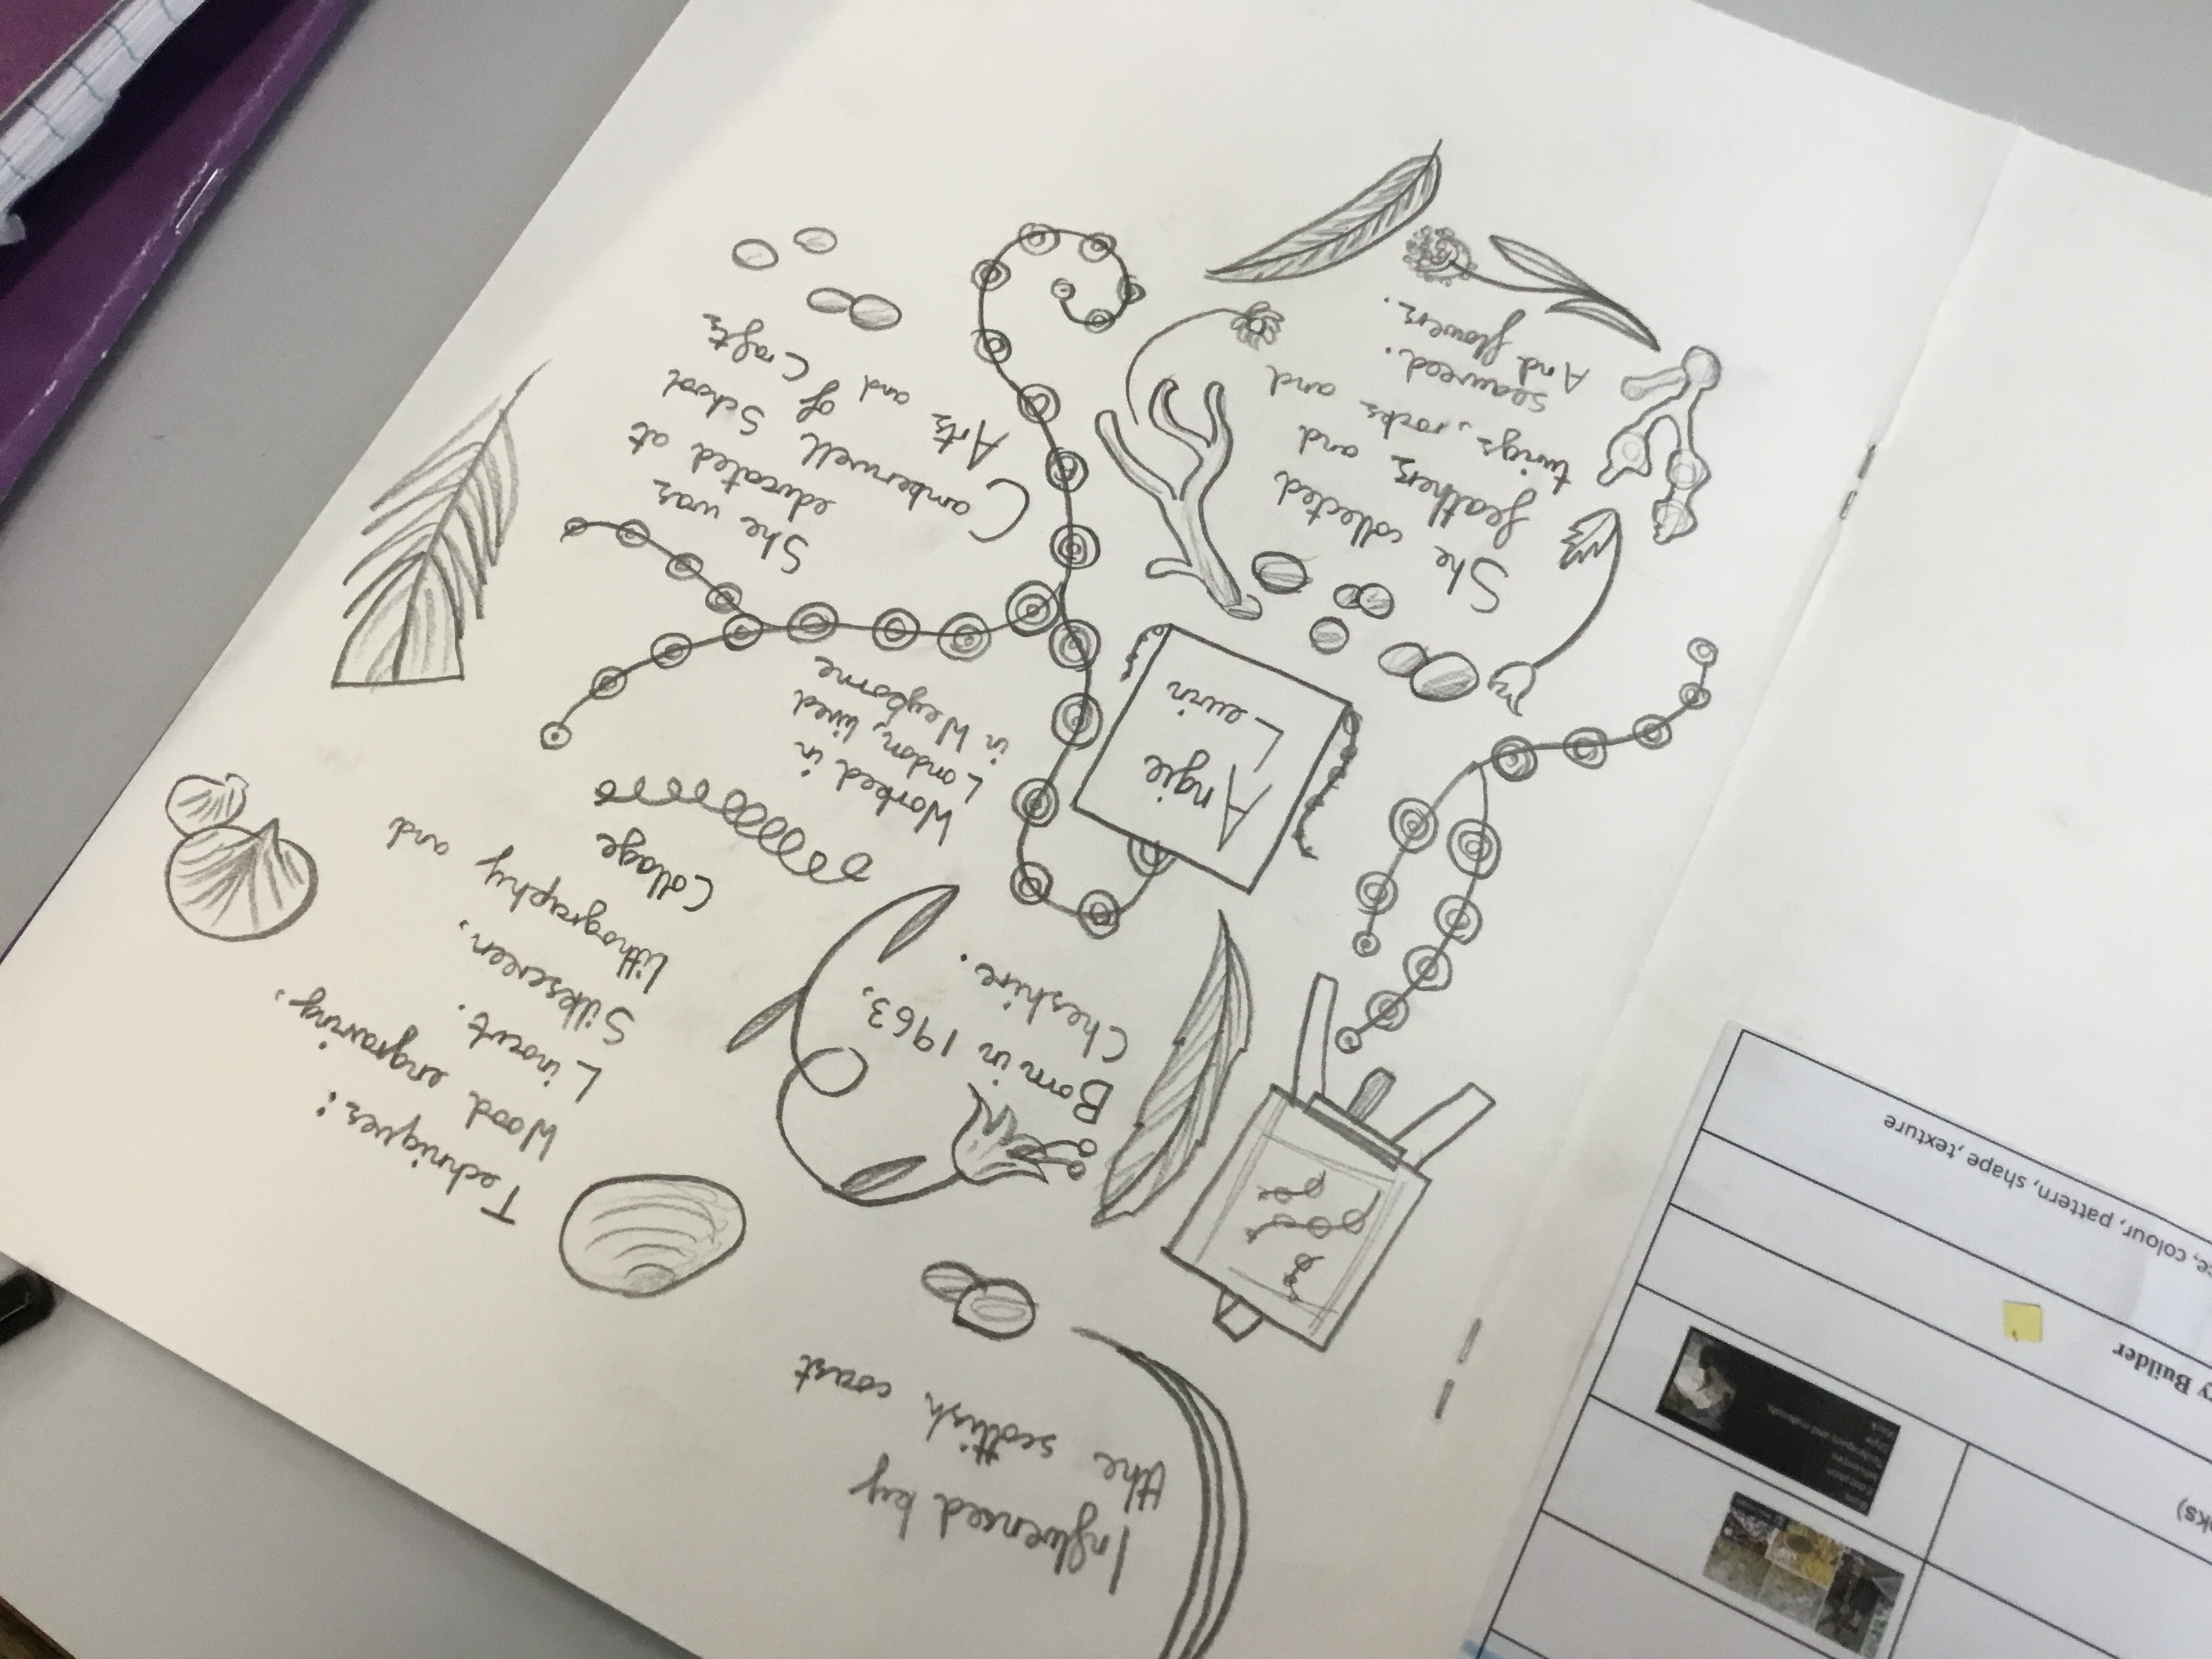 Influenced by
the scottish coast
Techniques:
Wood engraving,
Linocut.
Silkscreen,
lithography and
Collage
Born in 1963,
Cheshire.
Worked in
London, lived
in Weyborne
Angie
Lewin
She was
educated at
Camberwell School
Arts and of Crafts
She collected
feathers and
twings, rocks and
seaweed.
And flowers.
ks)
y Builder
ce, colour, pattern, shape, texture